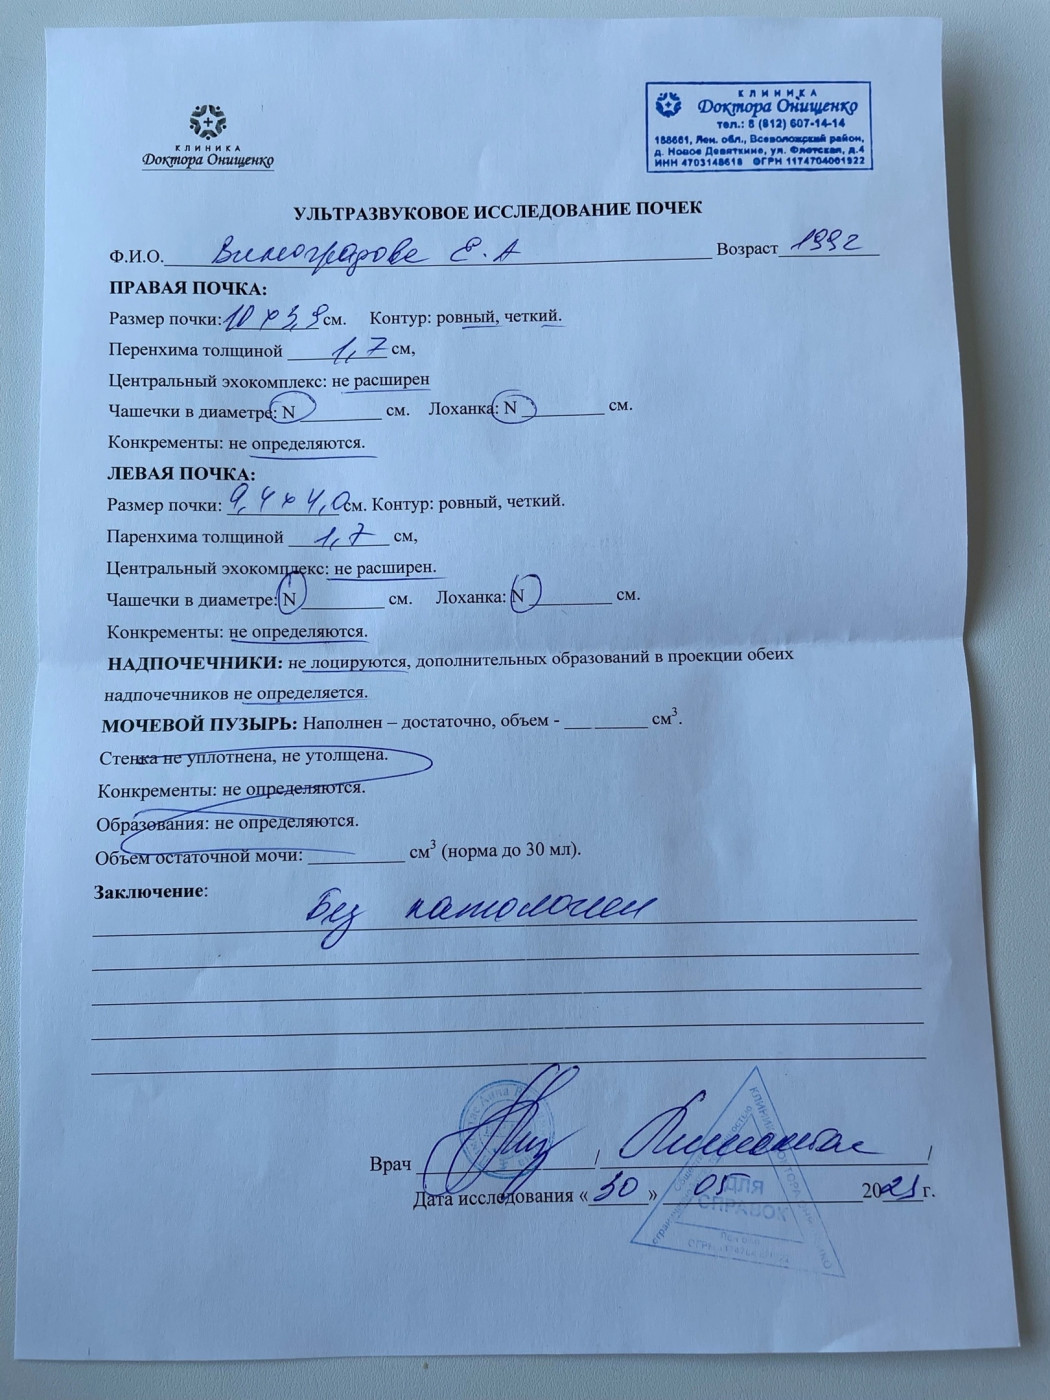 КЛИНИКА
Доктора Онищенко
КЛИНИКА
Доктора Онищенко
тел.: 8 (812) 607-14-14
188661, Лен. обл., Всеволожский район,
д. Новое Девяткино, ул. Флотская, д.4
ИНН 4703148618 ОГРН 1174704001922
УЛЬТРАЗВУКОВОЕ ИССЛЕДОВАНИЕ ПОЧЕК
Ф.И.О. Виноградова Е.А Возраст 1992
ПРАВАЯ ПОЧКА:
Размер почки: 10 х 3,9 см. Контур: ровный, четкий.
Перенхима толщиной 1,7 см,
Центральный эхокомплекс: не расширен
Чашечки в диаметре: N см. Лоханка: N см.
Конкременты: не определяются.
ЛЕВАЯ ПОЧКА:
Размер почки: 9,4 х 4,0 см. Контур: ровный, четкий.
Паренхима толщиной 1,7 см,
Центральный эхокомплекс: не расширен.
Чашечки в диаметре: N см. Лоханка: N см.
Конкременты: не определяются.
НАДПОЧЕЧНИКИ: не лоцируются, дополнительных образований в проекции обеих
надпочечников не определяется.
МОЧЕВОЙ ПУЗЫРЬ: Наполнен – достаточно, объем - ___ ______ см³.
Стенка не уплотнена, не утолщена.
Конкременты: не определяются.
Образования: не определяются.
Объем остаточной мочи: __________ см³ (норма до 30 мл).
Заключение:
Без патологии
Врач / /
Дата исследования «30» 05 2023 г.
ДЛЯ
СПРАВОК